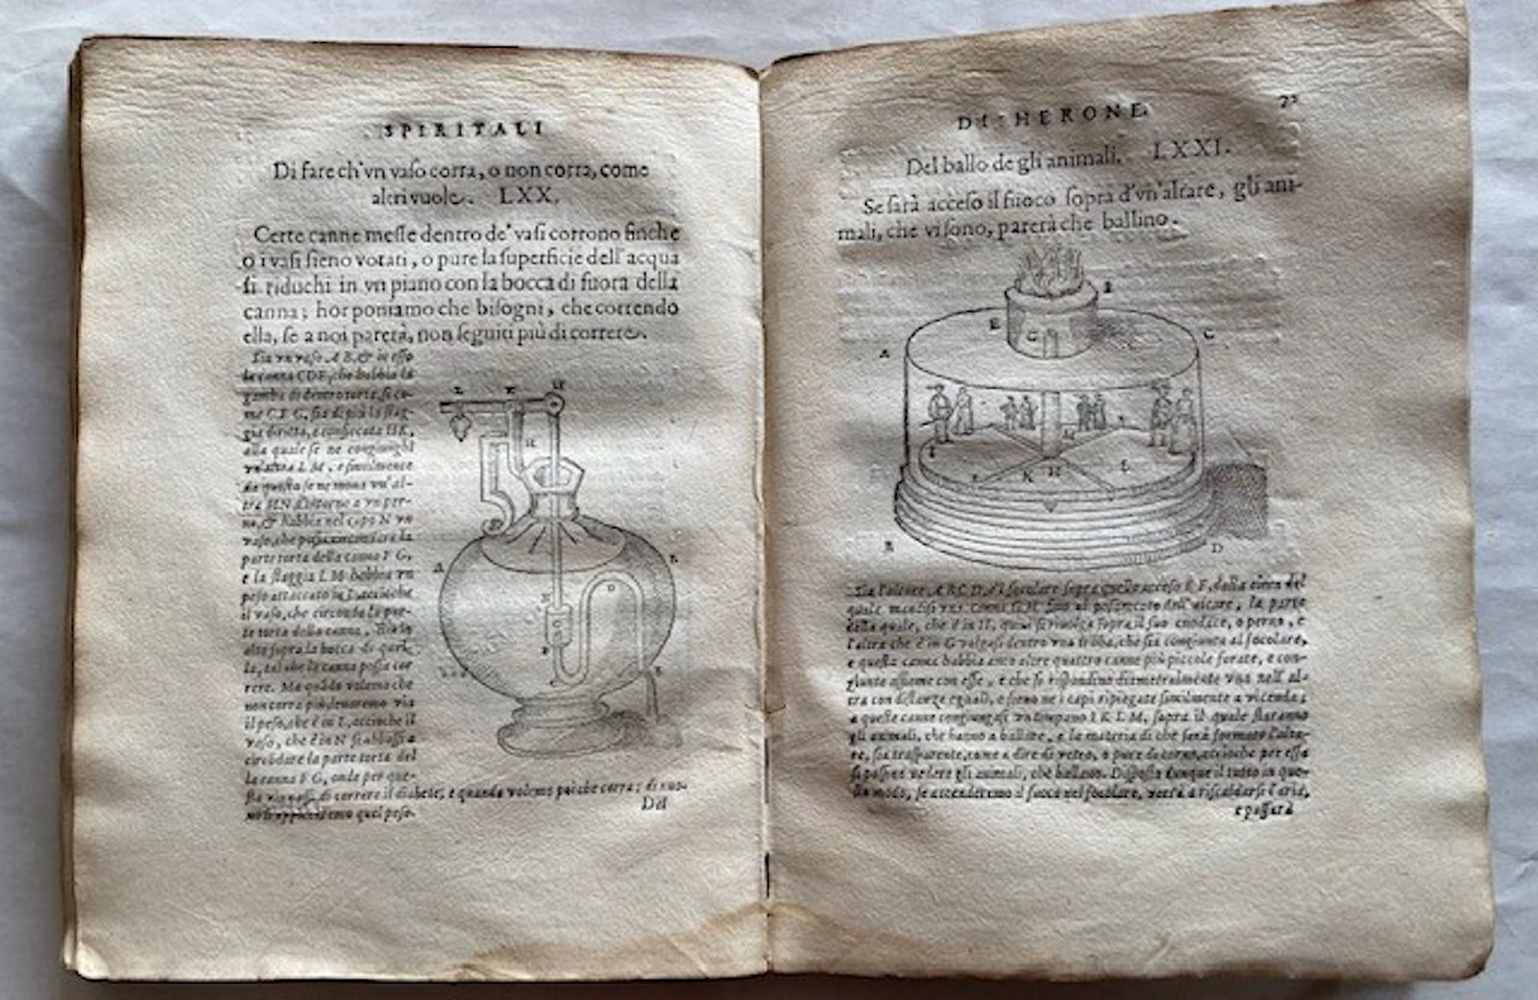 SPIRITALI
Di fare ch'vn vaso corra, o non corra, come
altri vuole. LXX.
Certe canne messe dentro de' vasi corrono finche
o i vasi sieno votati, o pure la superficie dell'acqua
si riduchi in vn piano con la bocca di fuora della
canna; hor poniamo che bisogni, che correndo
ella, se a noi parerà, non seguiti più di correre.
Sia vn vaso A B, & in esso
la canna CDF, che habbia la
gamba di dentro torta, si co-
me C F G, sia di più la stag-
gia diritta, e conficcata HK,
alla quale se ne congiunghi
vn'altra L M, e similmente
da questa se ne moua vn'al-
tra MN d'intorno a vn per-
no, & habbia nel capo N vn
vaso, che possa circondare la
parte torta della canna F G,
e la staggia L M habbia vn
peso attaccato in L, acciòche
il vaso, che circonda la par-
te torta della canna, stia in
alto sopra la bocca di quel-
la, tal che la canna possa cor
rere. Ma quãdo volemo che
non corra più leuaremo via
il peso, che è in L, accioche il
vaso, che è in N si abbassi a
circõdare la parte torta del
la canna F G, onde per que-
sta di correre il diabete; e quando volemo poi che corra; di nuo-
quel peso.
Del
DI HERONE.
Del ballo de gli animali. LXXI.
Se sarà acceso il fuoco sopra d'vn'altare, gli ani-
mali, che vi sono, parerà che ballino.
Sia l'altare A B C D, e'l focolare sopra quello acceso E F, dalla del
quale vna canna G H fino al pauimento dell'altare, la parte
della quale, che è in H, si riuolga sopra il suo cnodace, o perno, e
l'altra che è in G volgasi dentro vna tromba, che sia congiunta al focolare,
e questa canna habbia anco altre quattro canne più piccole forate, e con-
giunte assieme con esse, e che si rispondino diametralmente vna nell'al-
tra con distanze eguali, e sieno ne i capi ripiegate similmente a vicenda;
a queste canne congiungasi vn timpano I K L M, sopra il quale staranno
gli animali, che hanno a ballare, e la materia di che sarà formato l'alta-
re, sia trasparente, come a dire di vetro, o pure di corno, accioche per essa
si possino vedere gli animali, che ballano. Disposto dunque il tutto in que-
sto modo, se accenderemo il fuoco nel focolare, verrà a riscaldarsi l'aria,
e passerà